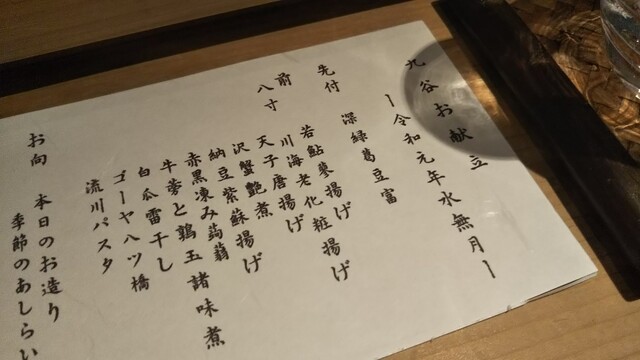 九谷お献立
ー令和元年水無月ー
先付 深緑葛豆富
前八寸 若鮎蓼揚げ
川海老化粧揚げ
天子唐揚げ
沢蟹艶煮
納豆紫蘇揚げ
赤黒凍み蒟蒻
牛蒡と鶉玉諸味煮
白瓜雷干し
ゴーヤ八ツ橋
流川パスタ
お向 本日のお造り
季節のあしらい